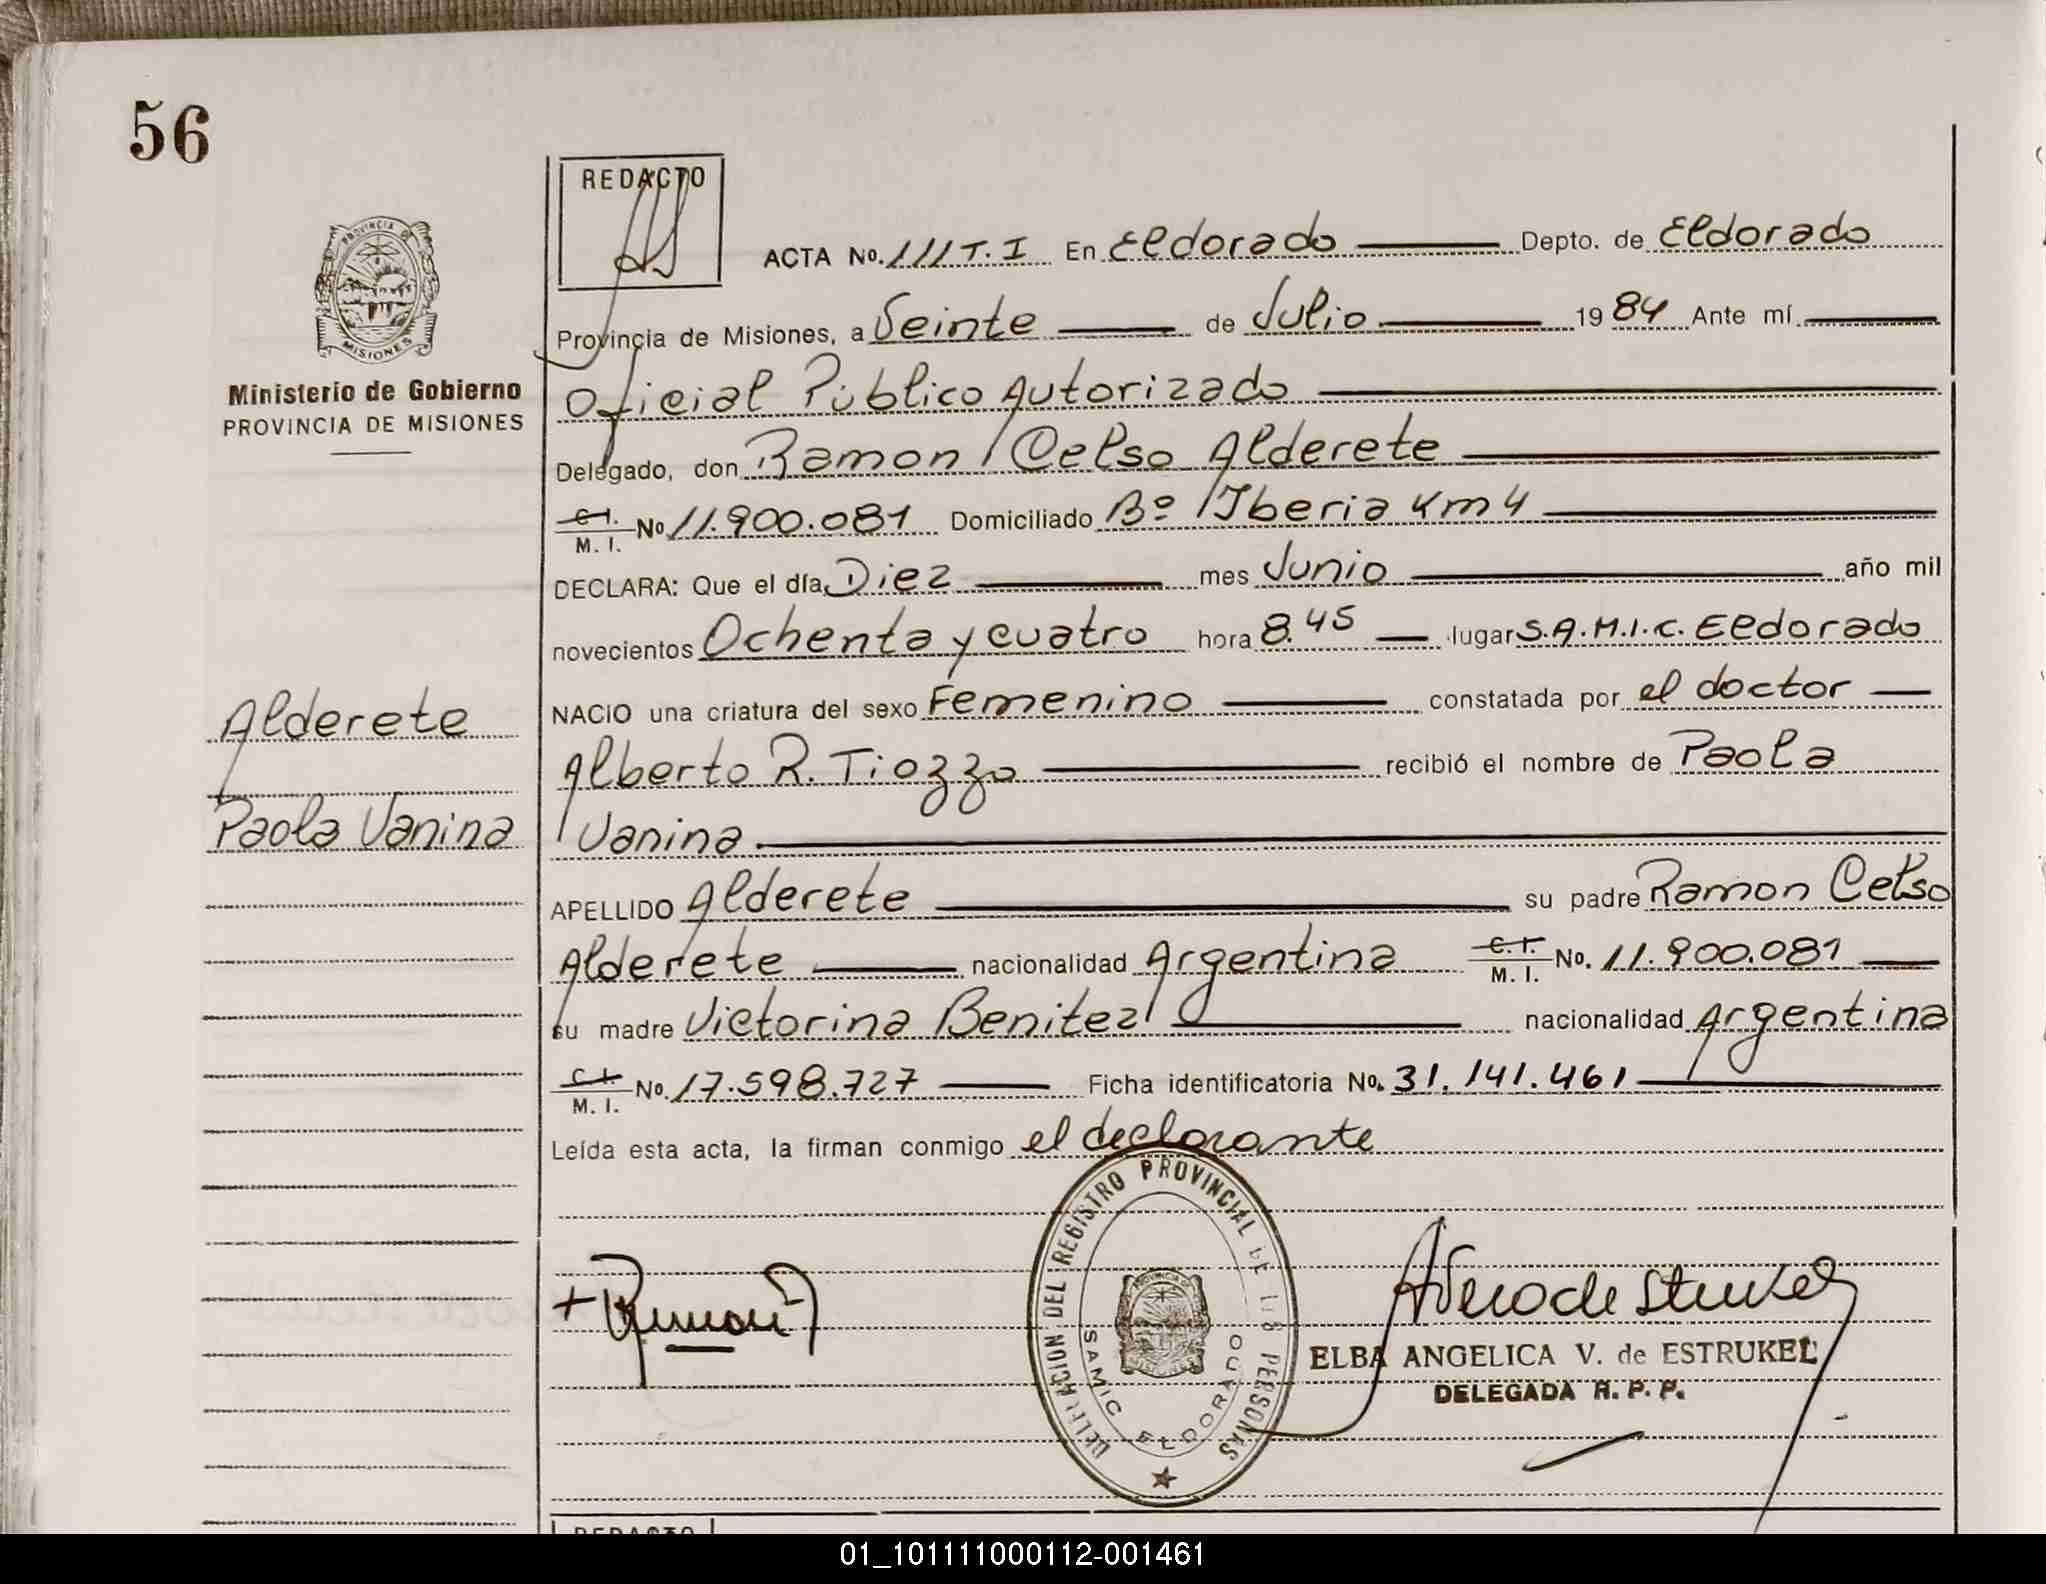 56
REDACTO
ACTA No. 111 T. I En Eldorado Depto. de Eldorado
Provincia de Misiones, a Veinte de Julio 1984 Ante mí
Oficial Público Autorizado
Delegado, don Ramon Celso Alderete
C. I. M. I. No 11.900.081 Domiciliado Bº Iberia Km 4
DECLARA: Que el día Diez mes Junio año mil
novecientos Ochenta y cuatro hora 8.45 lugar S.A.M.I.C. Eldorado
NACIO una criatura del sexo Femenino constatada por el doctor
Alberto R. Tiozzo recibió el nombre de Paola
Vanina
APELLIDO Alderete su padre Ramon Celso
Alderete nacionalidad Argentina C. I. M. I. No. 11.900.081
su madre Victorina Benitez nacionalidad Argentina
C. I. M. I. No. 17.598.727 Ficha identificatoria No. 31.141.461
Leída esta acta, la firman conmigo el declarante
PROVINCIA DE
MISIONES
Ministerio de Gobierno
PROVINCIA DE MISIONES
Alderete
Paola Vanina
DELEGACION DEL REGISTRO PROVINCIAL DE LAS PERSONAS
SAMIC ELDORADO
ELBA ANGELICA V. de ESTRUKEL
DELEGADA R. P. P.
REDACTO
01_101111000112-001461